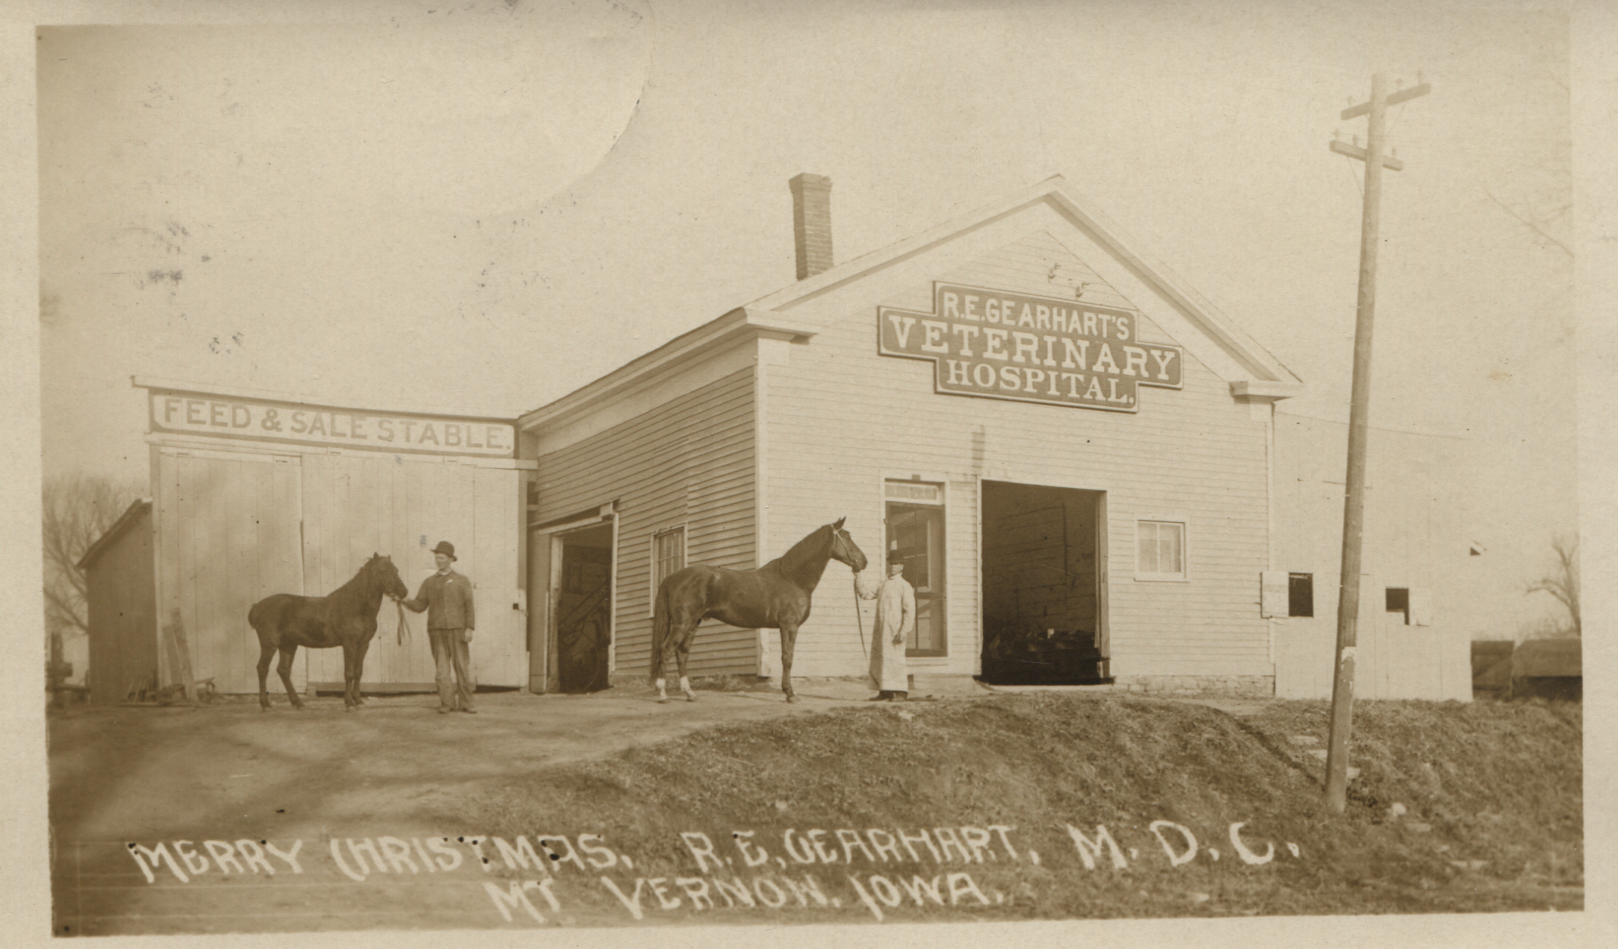 R.E.GEARHART'S
VETERINARY
HOSPITAL.
FEED & SALE STABLE.
MERRY CHRISTMAS. R.E.GEARHART. M.D.C.
MT VERNON. IOWA.